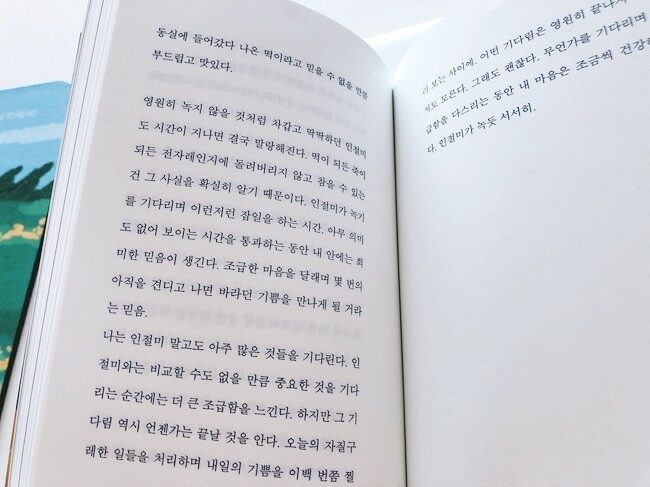 동실에 들어갔다 나온 떡이라고 믿을 수 없을 만큼
부드럽고 맛있다.
영원히 녹지 않을 것처럼 차갑고 딱딱하던 인절미
도 시간이 지나면 결국 말랑해진다. 떡이 되든 죽이
되든 전자레인지에 돌려버리지 않고 참을 수 있는
건 그 사실을 확실히 알기 때문이다. 인절미가 녹기
를 기다리며 이런저런 잡일을 하는 시간. 아무 의미
도 없어 보이는 시간을 통과하는 동안 내 안에는 희
미한 믿음이 생긴다. 조급한 마음을 달래며 몇 번의
아직을 견디고 나면 바라던 기쁨을 만나게 될 거라
는 믿음.
나는 인절미 말고도 아주 많은 것들을 기다린다. 인
절미와는 비교할 수도 없을 만큼 중요한 것을 기다
리는 순간에는 더 큰 조급함을 느낀다. 하지만 그 기
다림 역시 언젠가는 끝날 것을 안다. 오늘의 자질구
레한 일들을 처리하며 내일의 기쁨을 이백 번쯤 찔
러 보는 사이에. 어떤 기다림은 영원히 끝나지
지도 모른다. 그래도 괜찮다. 무언가를 기다리며
급함을 다스리는 동안 내 마음은 조금씩 건강
다. 인절미가 녹듯 서서히.